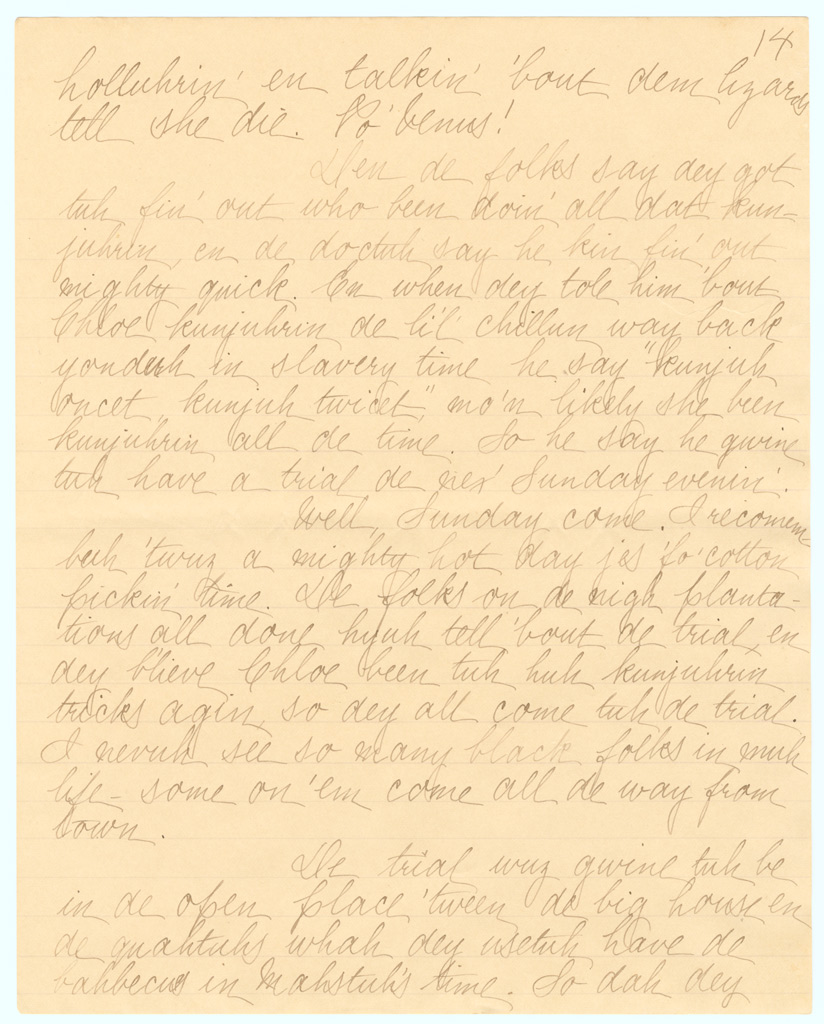 14
holluhrin' en talkin' 'bout dem lizards
tell she die. Po' Venus!
Den de folks say dey got
tuh fin' out who been doin' all dat kun-
juhrin, en de doctuh say he kin fin' out
mighty quick. En when dey tole him 'bout
Chloe kunjuhrin de li'l' chillun way back
yonduh in slavery time he say "kunjuh
oncet, kunjuh twicet", mo'n likely she been
kunjuhrin all de time. So he say he gwine
tuh have a trial de nex' Sunday evenin'.
Well, Sunday come. I recomem-
buh 'twuz a mighty hot day jes 'fo' cotton
pickin' time. De folks on de nigh planta-
tions all done hyuh tell 'bout de trial, en
dey b'lieve Chloe been tuh huh kunjuhrin
tricks agin, so dey all come tuh de trial.
I nevuh see so many black folks in muh
life - some on 'em come all de way from
town.
De trial wuz gwine tuh be
in de open place 'tween de big house en
de quahtuhs whah dey usetuh have de
bahbecus in Mahstuh's time. So dah dey